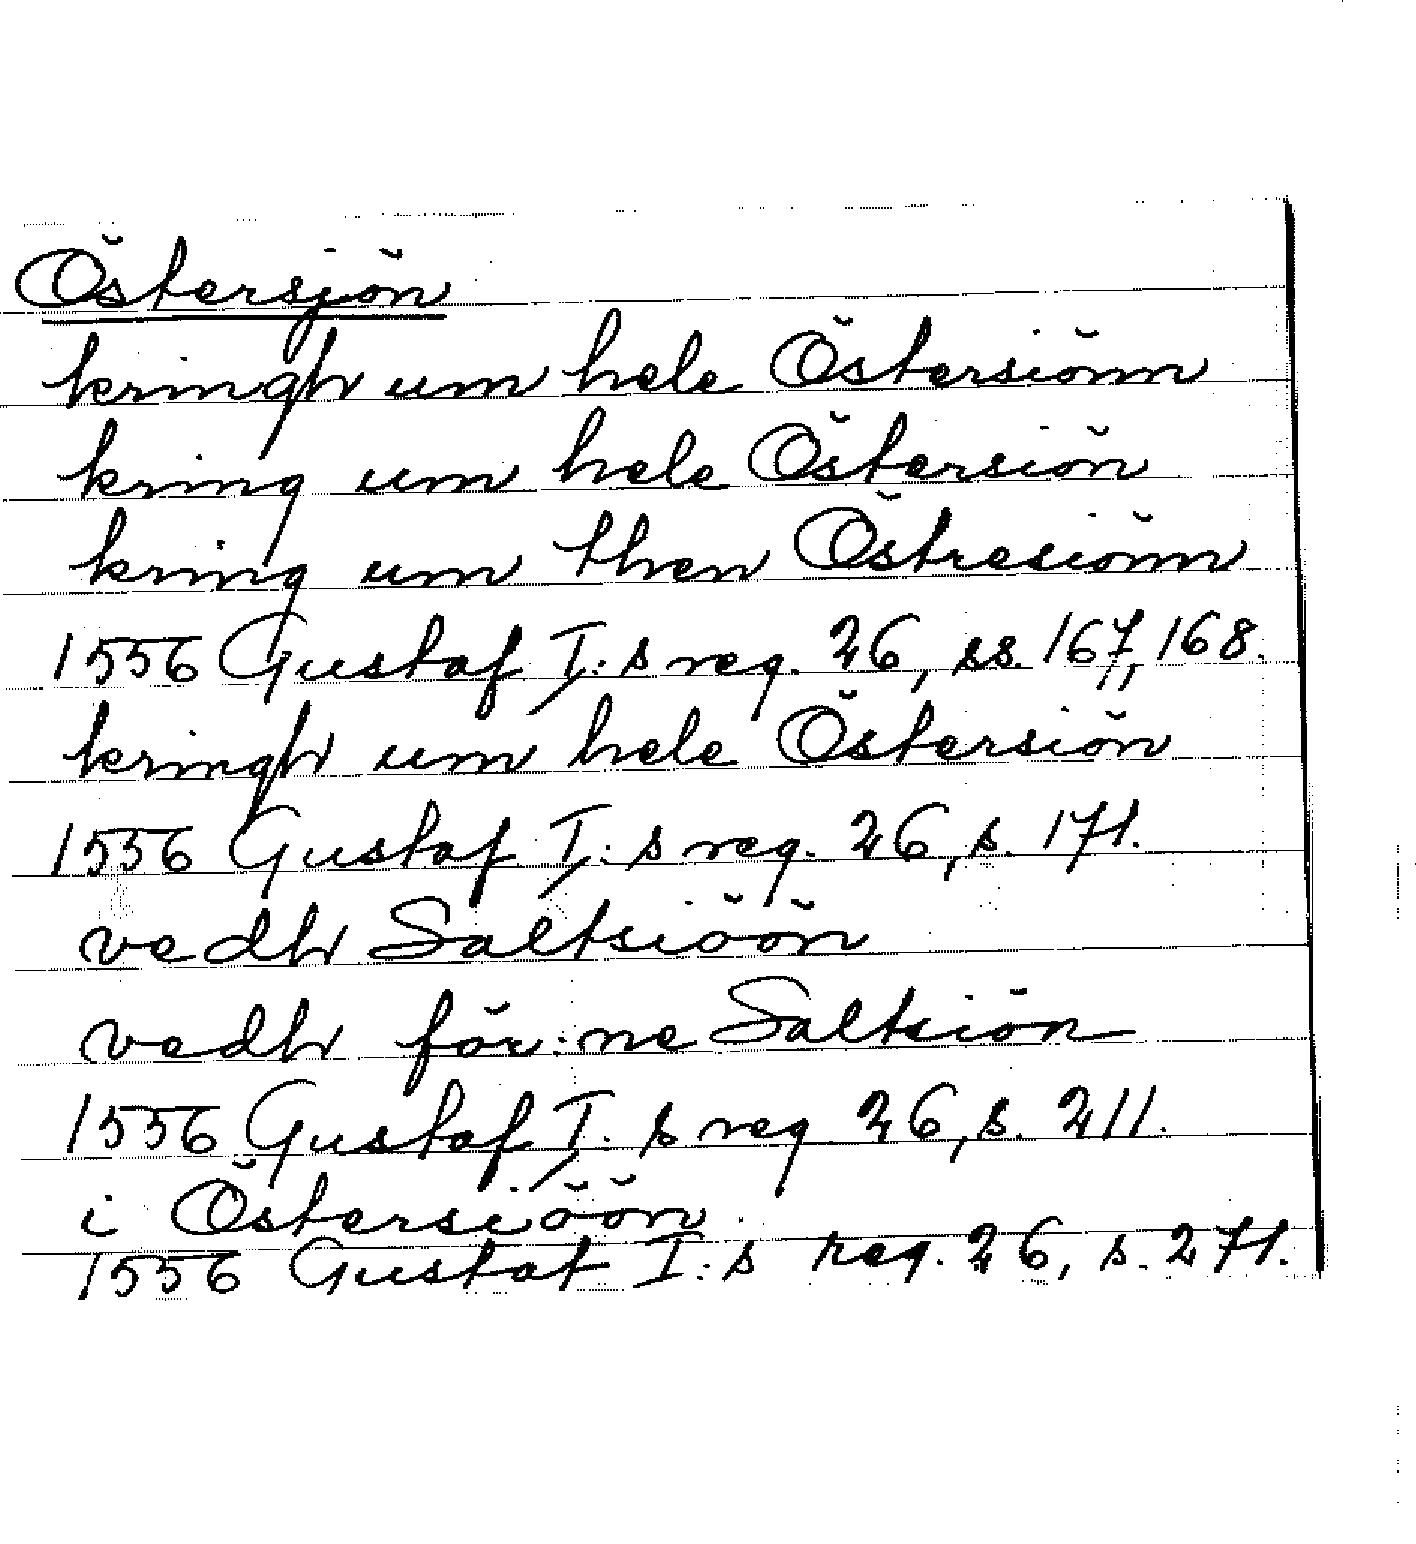 Östersjön
kringh um hele Östersiönn
kring um hele Östersiön
kring um then Östresiönn
1556 Gustaf I:s reg. 26, ss. 167, 168.
kringh um hele Östersiön
1556 Gustaf I:s reg. 26, s. 171.
vedh Saltsiöön
vedh för:ne Saltsiön
1556 Gustaf I:s reg 26, s. 211.
i Östersiöön
1556 Gustaf I:s reg. 26, s. 271.